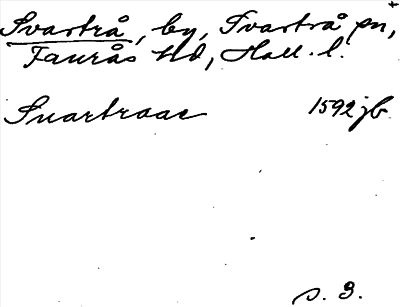 Svartrå, by, Svartrå sn,
Faurås hd, Hall. l.
Suartraae 1592 jb
s. 3.